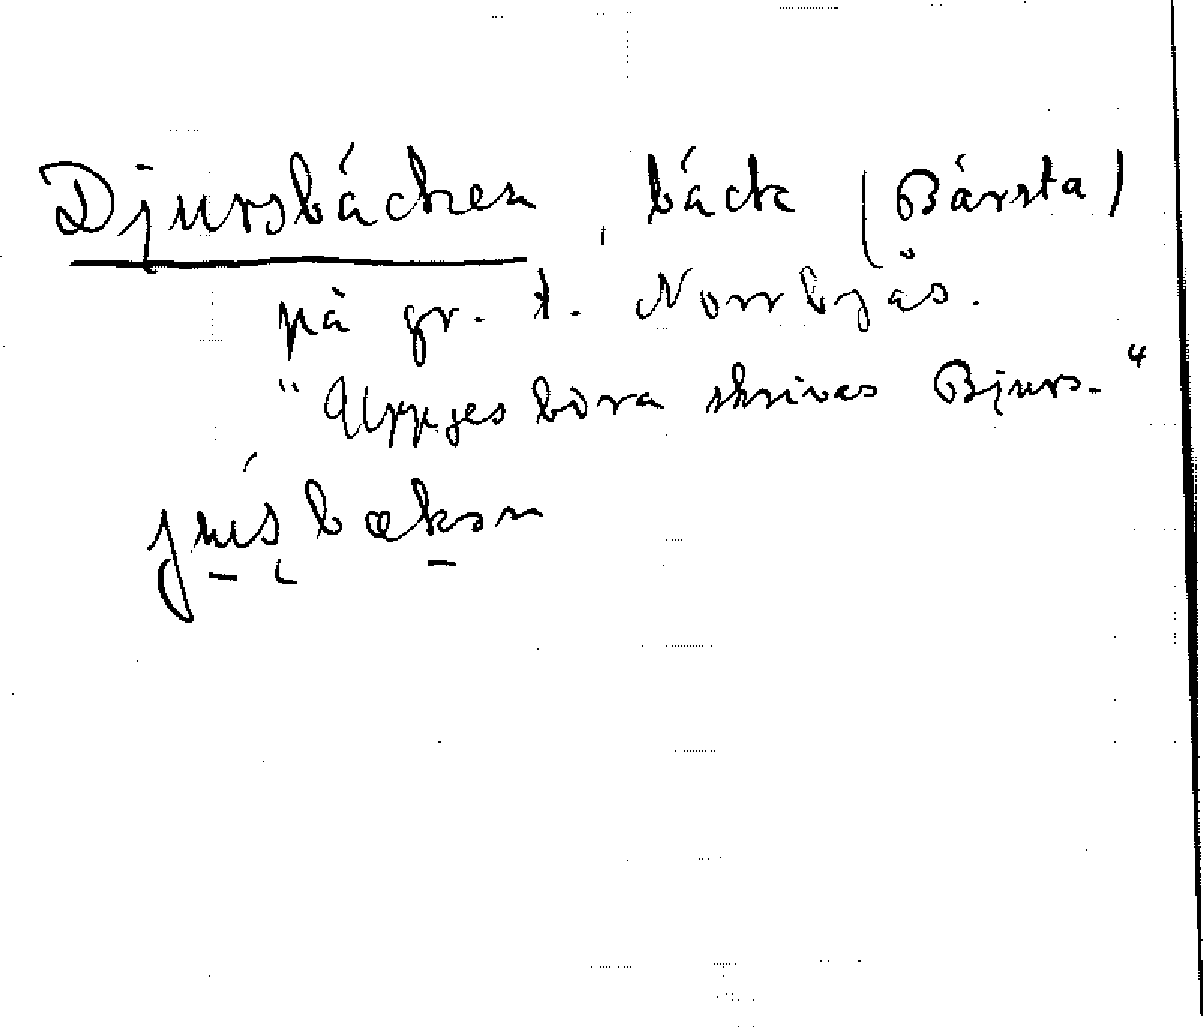 Djursbäcken, bäck (Bärsta)
på gr. t. Norrbyås.
"Uppges böra skrivas Bjurs-"
jusbækən